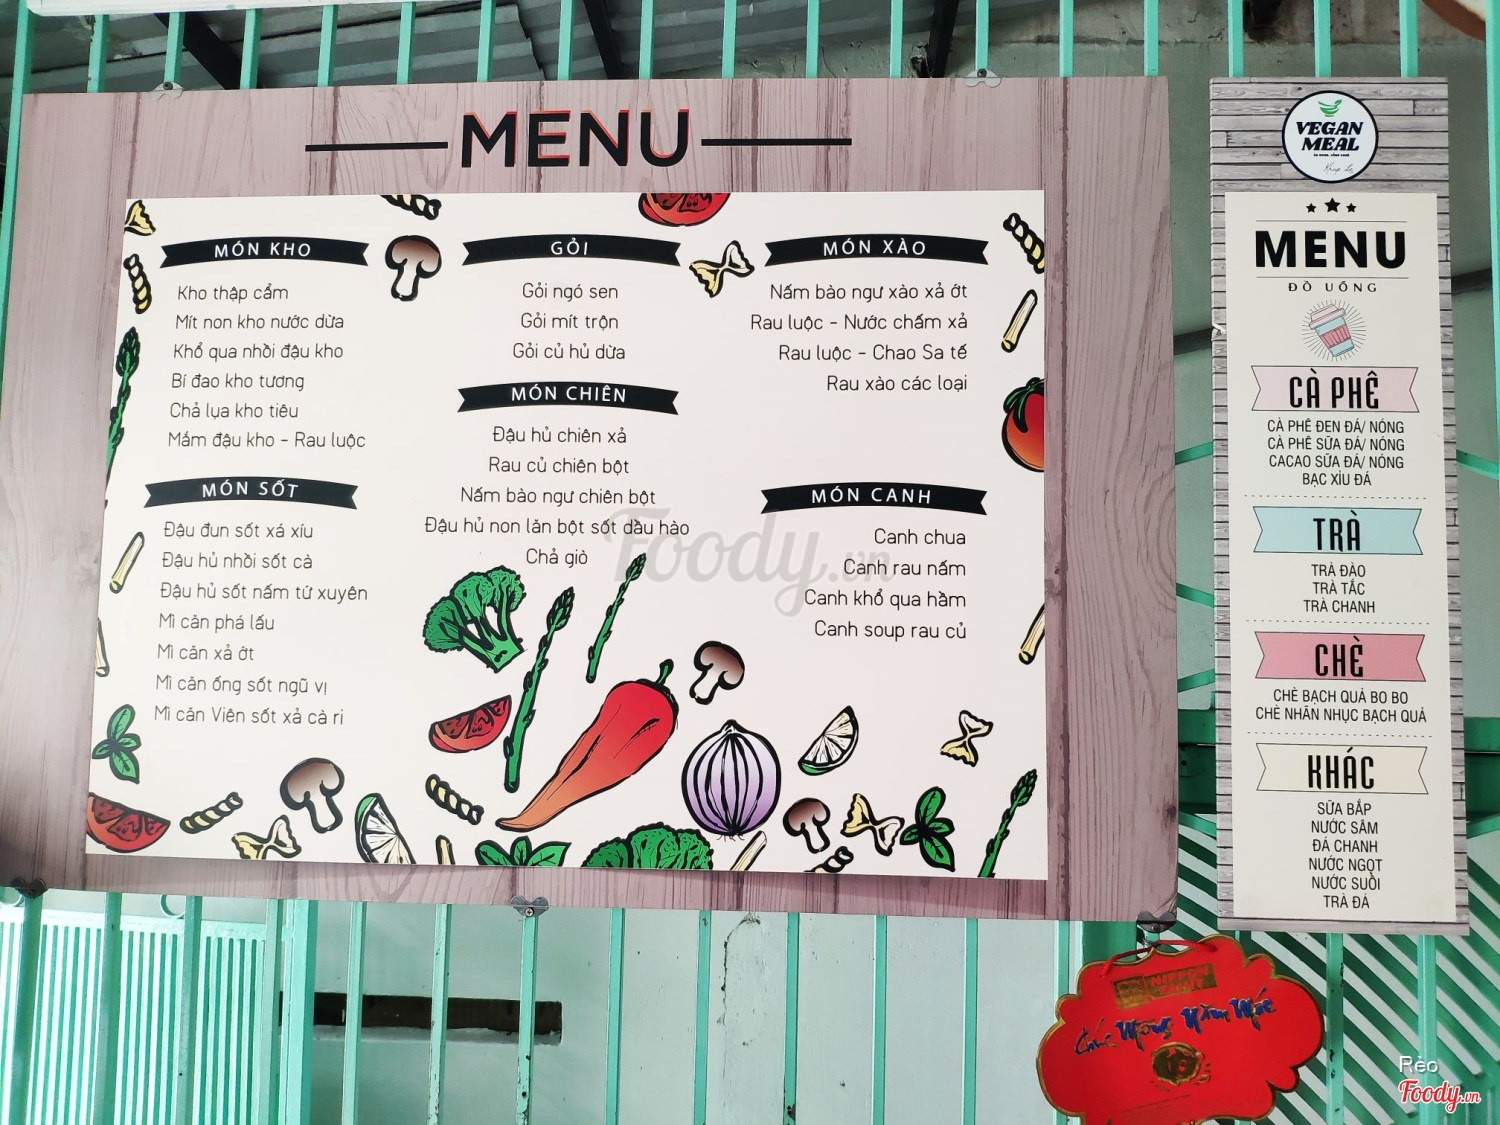 MENU
MÓN KHO
Kho thập cẩm
Mít non kho nước dừa
Khổ qua nhồi đậu kho
Bí đao kho tương
Chả lụa kho tiêu
Mắm đậu kho - Rau luộc
MÓN SỐT
Đậu đun sốt xá xíu
Đậu hủ nhồi sốt cà
Đậu hủ sốt nấm tứ xuyên
Mì căn phá lấu
Mì căn xả ớt
Mì căn ống sốt ngũ vị
Mì căn Viên sốt xả cà ri
GỎI
Gỏi ngó sen
Gỏi mít trộn
Gỏi củ hủ dừa
MÓN CHIÊN
Đậu hủ chiên xả
Rau củ chiên bột
Nấm bào ngư chiên bột
Đậu hủ non lăn bột sốt dầu hào
Chả giò
MÓN XÀO
Nấm bào ngư xào xả ớt
Rau luộc - Nước chấm xả
Rau luộc - Chao Sa tế
Rau xào các loại
MÓN CANH
Canh chua
Canh rau nấm
Canh khổ qua hầm
Canh soup rau củ
Foody.vn
VEGAN
MEAL
MENU
ĐỒ UỐNG
CÀ PHÊ
CÀ PHÊ ĐEN ĐÁ/ NÓNG
CÀ PHÊ SỮA ĐÁ/ NÓNG
CACAO SỮA ĐÁ/ NÓNG
BẠC XỈU ĐÁ
TRÀ
TRÀ ĐÀO
TRÀ TẮC
TRÀ CHANH
CHÈ
CHÈ BẠCH QUẢ BO BO
CHÈ NHÃN NHỤC BẠCH QUẢ
KHÁC
SỮA BẮP
NƯỚC SÂM
ĐÁ CHANH
NƯỚC NGỌT
NƯỚC SUỐI
TRÀ ĐÁ
NIPPON
PAINT
Chúc Mừng Năm Mới
Rèo
Foody.vn